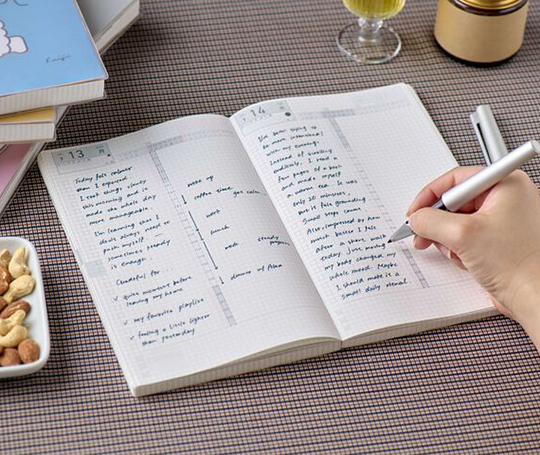 13
Today felt calmer
than I expected.
I took things slowly
this morning and it
made the whole day
more manageable.
I'm learning that I
don't always need to
push myself.
sometimes steady
is enough.
Grateful for
✓ quiet moments before
leaving my home
✓ my favorite playlist
✓ feeling a little lighter
than yesterday
wake up
coffee time
work
lunch
work
steady
dinner w/ Alex
14
I've been trying to
be more intentional
with my evening.
Instead of scrolling
endlessly, I read a
few pages of a book
and made myself
a warm tea. It was
only 20 minutes,
but it felt grounding.
Small steps count.
Also impressed by how
much better I felt
after a short walk
today. Just moving
my body changed my
whole mood. Maybe
I should make it a
small daily ritual.